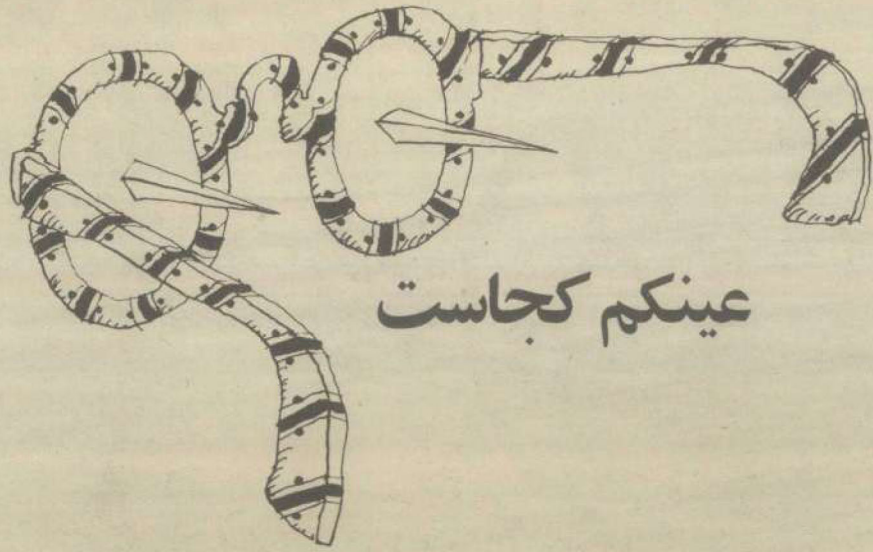 عینکم کجاست